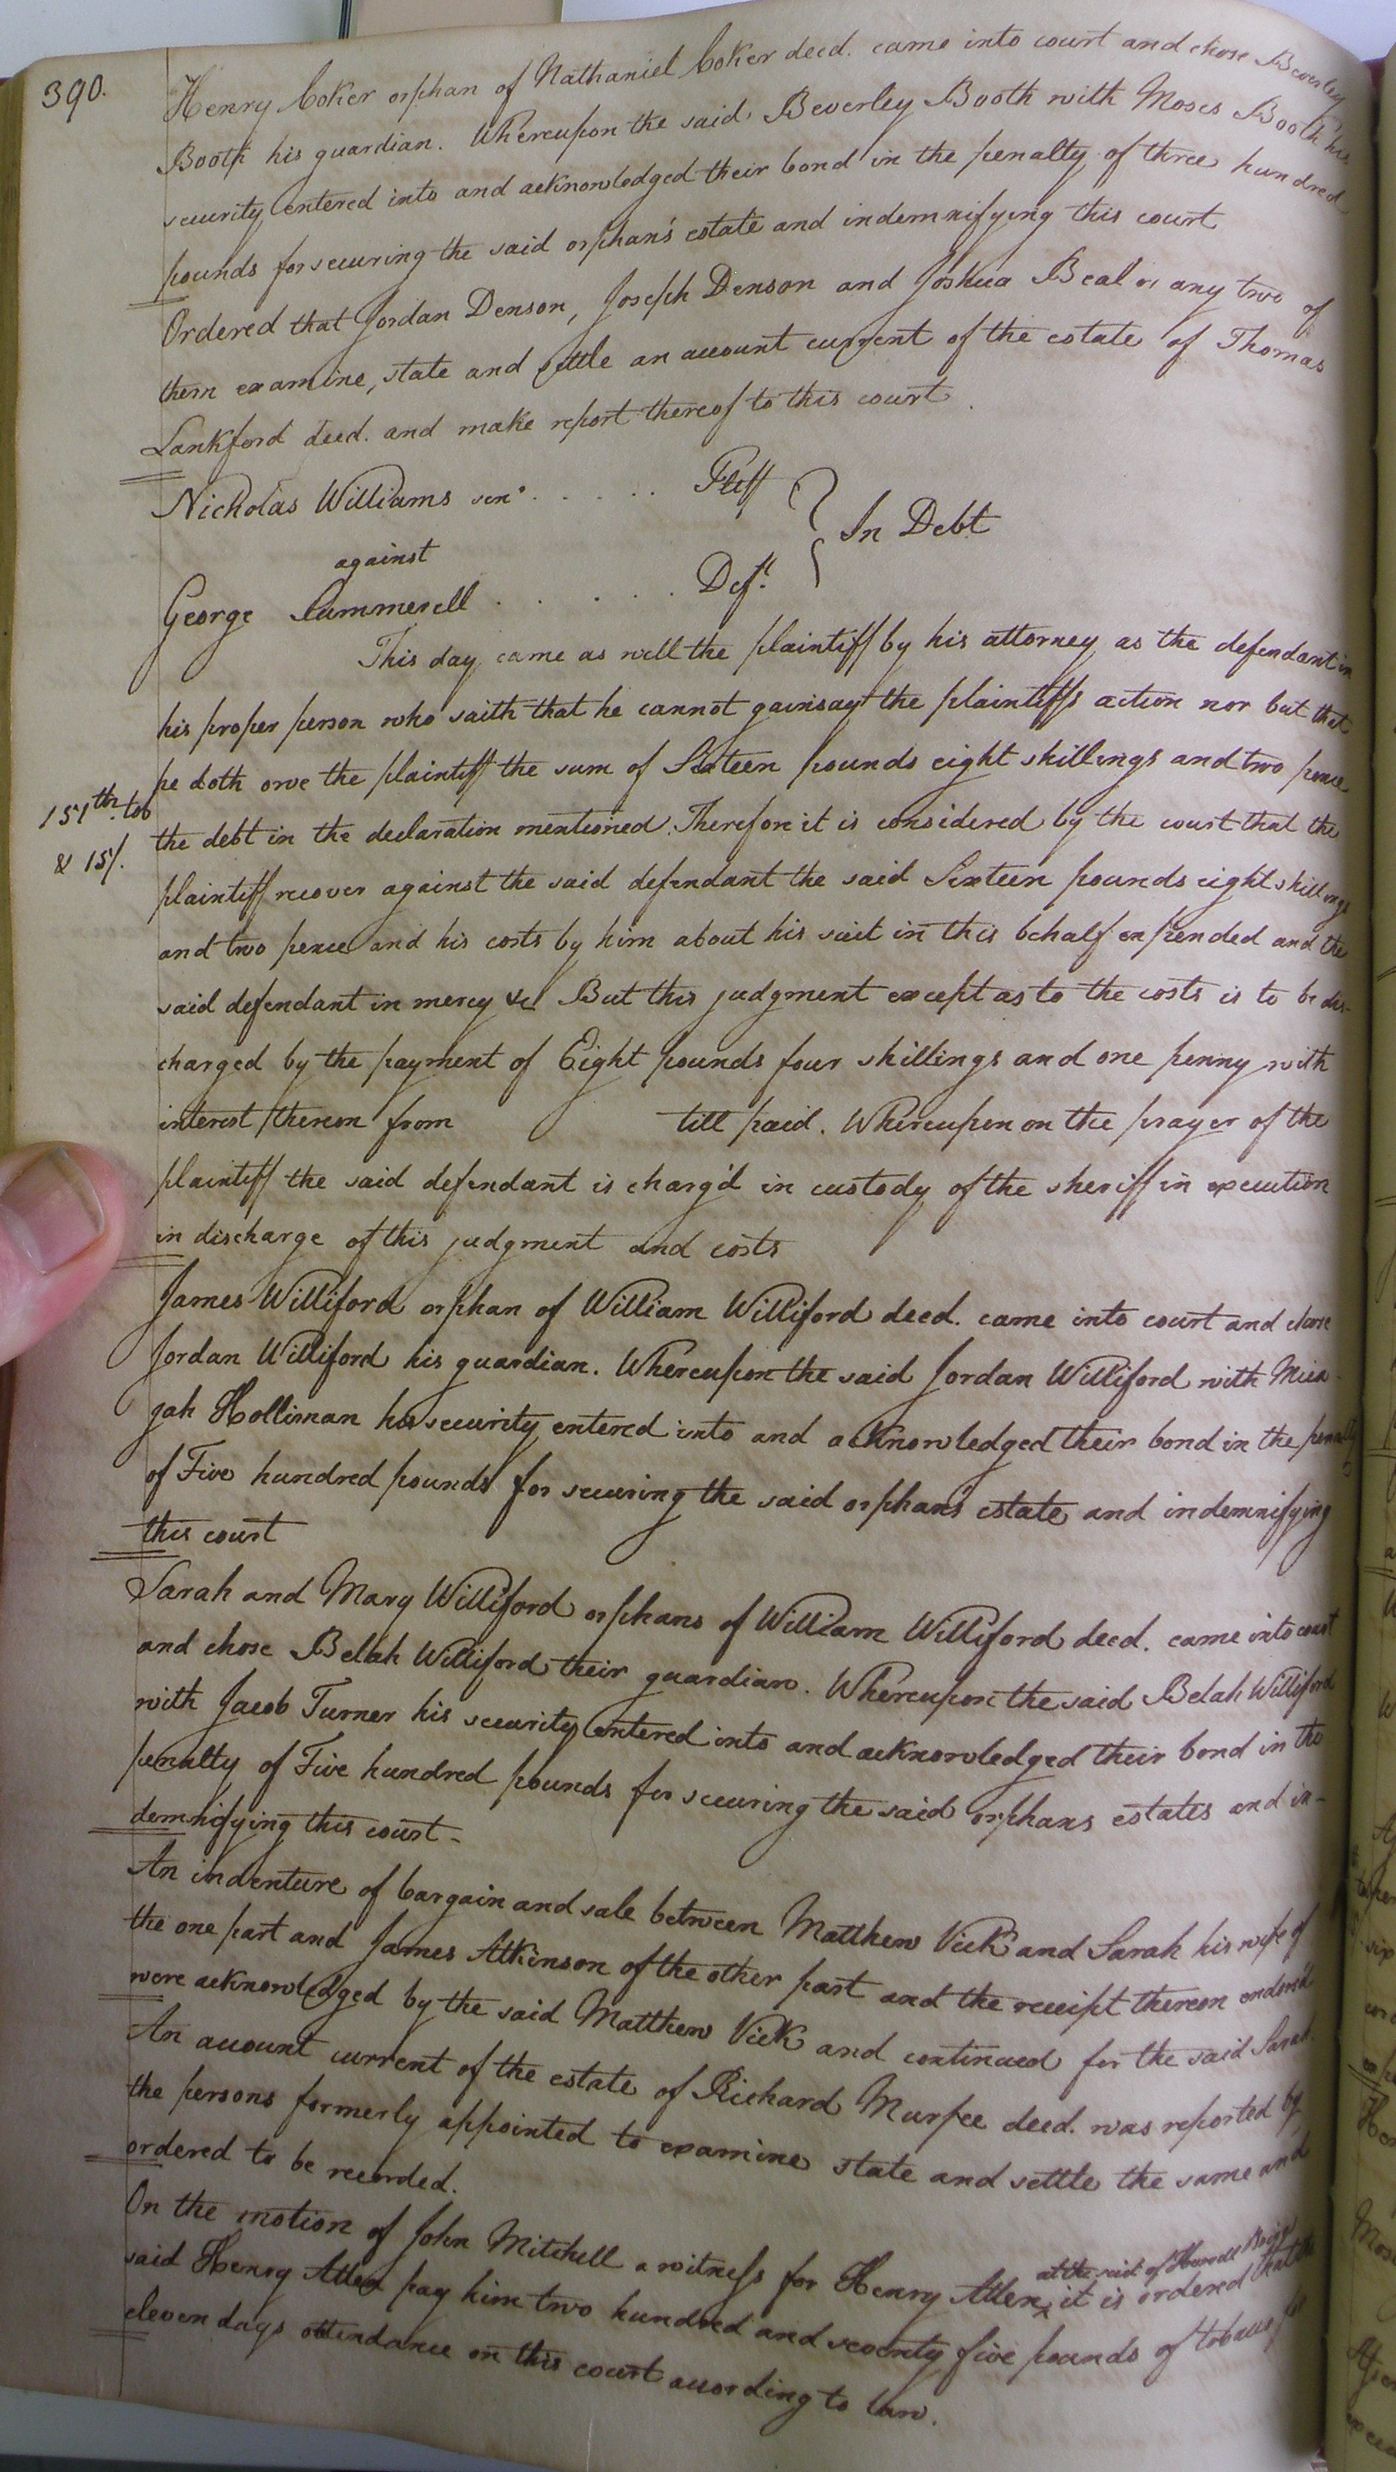 390.
Henry Coker orphan of Nathaniel Coker deed. came into court and chose Beverley
Booth his guardian. Whereupon the said Beverley Booth with Moses Booth his
security entered into and acknowledged their bond in the penalty of three hundred
pounds for securing the said orphan's estate and indemnifying this court
Ordered that Jordan Denson, Joseph Denson and Joshua Beal or any two of
them examine, state and settle an account current of the estate of Thomas
Lankford deed. and make report thereof to this court.
Nicholas Williams senr. . . . . . Pltff
against
In Debt
George Summerell . . . . . . Deft.
This day came as well the plaintiff by his attorney as the defendant in
his proper person who saith that he cannot gainsay the plaintiffs action nor but that
he doth owe the plaintiff the sum of Sixteen pounds eight shillings and two pence
151th. tob
& 15/.
the debt in the declaration mentioned. Therefore it is considered by the court that the
plaintiff recover against the said defendant the said Sixteen pounds eight shillings
and two pence and his costs by him about his suit in this behalf expended and the
said defendant in mercy &c But this judgment except as to the costs is to be dis-
charged by the payment of Eight pounds four shillings and one penny with
interest thereon from till paid. Whereupon on the prayer of the
plaintiff the said defendant is charg'd in custody of the sheriff in execution
in discharge of this judgment and costs
James Williford orphan of William Williford deed. came into court and chose
Jordan Williford his guardian. Whereupon the said Jordan Williford with Mica-
jah Holliman his security entered into and acknowledged their bond in the penalty
of Five hundred pounds for securing the said orphan's estate and indemnifying
this court
Sarah and Mary Williford orphans of William Williford deed. came into court
and chose Belah Williford their guardian. Whereupon the said Belah Williford
with Jacob Turner his security entered into and acknowledged their bond in the
penalty of Five hundred pounds for securing the said orphans estates and in-
demnifying this court-
An indenture of bargain and sale between Matthew Vick and Sarah his wife of
the one part and James Atkinson of the other part and the receipt thereon endors'd
were acknowledged by the said Matthew Vick and continued for the said Sarah.
An account current of the estate of Richard Murfee deed. was reported by
the persons formerly appointed to examine state and settle the same and
ordered to be recorded.
at the suit of Howell
On the motion of John Mitchell a witness for Henry Atlen it is ordered that the
said Henry Atlen pay him two hundred and seventy five pounds of tobacco for
eleven days attendance on this court according to law.